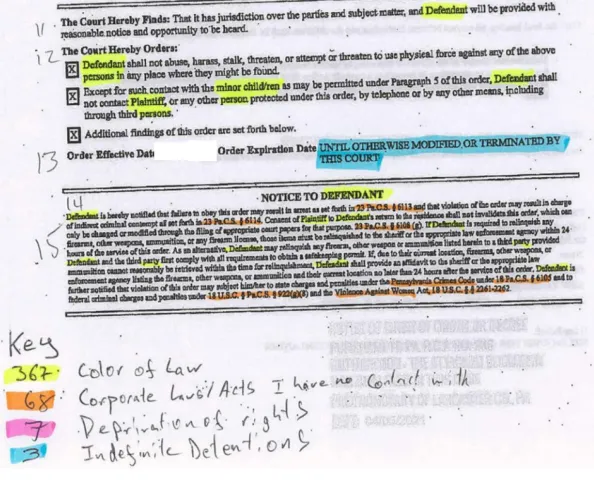 11 The Court Hereby Finds: That it has jurisdiction over the parties and subject matter, and Defendant will be provided with
reasonable notice and opportunity to be heard.
12 The Court Hereby Orders:
X Defendant shall not abuse, harass, stalk, threaten, or attempt or threaten to use physical force against any of the above
persons in any place where they might be found.
X Except for such contact with the minor child/ren as may be permitted under Paragraph 5 of this order, Defendant shall
not contact Plaintiff, or any other person protected under this order, by telephone or by any other means, including
through third persons.
X Additional findings of this order are set forth below.
13 Order Effective Date Order Expiration Date UNTIL OTHERWISE MODIFIED OR TERMINATED BY
THIS COURT
14 NOTICE TO DEFENDANT
Defendant is hereby notified that failure to obey this order may result in arrest as set forth in 23 Pa.C.S. § 6113 and that violation of the order may result in charge
of indirect criminal contempt as set forth in 23 Pa.C.S. § 6114. Consent of Plaintiff to Defendant's return to the residence shall not invalidate this order, which can
15 only be changed or modified through the filing of appropriate court papers for that purpose. 23 Pa.C.S. § 6108 (g). If Defendant is required to relinquish any
firearms, other weapons, ammunition, or any firearm license, those items must be relinquished to the sheriff or the appropriate law enforcement agency within 24
hours of the service of this order. As an alternative, Defendant may relinquish any firearm, other weapon or ammunition listed herein to a third party provided
Defendant and the third party first comply with all requirements to obtain a safekeeping permit. If, due to their current location, firearms, other weapons, or
ammunition cannot reasonably be retrieved within the time for relinquishment, Defendant shall provide an affidavit to the sheriff or the appropriate law
enforcement agency listing the firearms, other weapons, or ammunition and their current location no later than 24 hours after the service of this order, Defendant is
further notified that violation of this order may subject him/her to state charges and penalties under the Pennsylvania Crimes Code under 18 Pa.C.S. § 6105 and to
federal criminal charges and penalties under 18 U.S.C. § Pa.C.S. § 922(g)(8) and the Violence Against Women Act, 18 U.S.C. § § 2261-2262.
Key
367. Color of Law
68. Corporate Laws/Acts I have no Contract with
7 Deprivation of rights
3 Indefinite Detentions